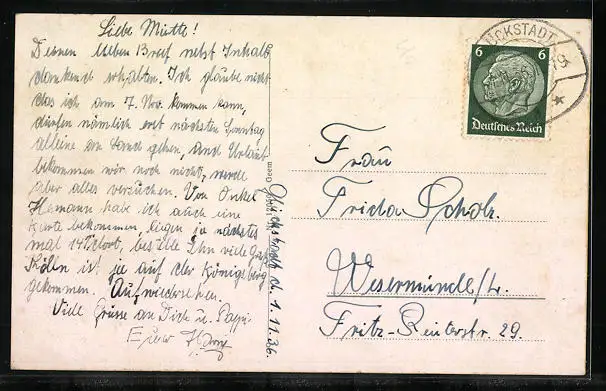 Liebe Mutte!
Deinen lieben Brief nebst Inhalt
dankend erhalten. Ich glaube nicht
das ich am 7. Nov. kommen kann,
dürfen nämlich erst nächsten Sonntag
alleine an Land gehen, und Urlaub
bekommen wir noch nicht, werde
aber alles versuchen. Von Onkel
Hermann habe ich auch eine
Karte bekommen, liegen ja nächstes
mal 14 T. dort, bestelle Ihn viele Grüße
Kölln ist ja auf der Königsberg
gekommen. Aufwiedersehen.
Viele Grüsse an Dich u. Pappi
Euer
Glückstadt d. 1.11.36.
GLÜCKSTADT
6 6
Deutsches Reich
Frau
Frida Scholz
Wesermünde/L.
Fritz-Reuterstr. 29.